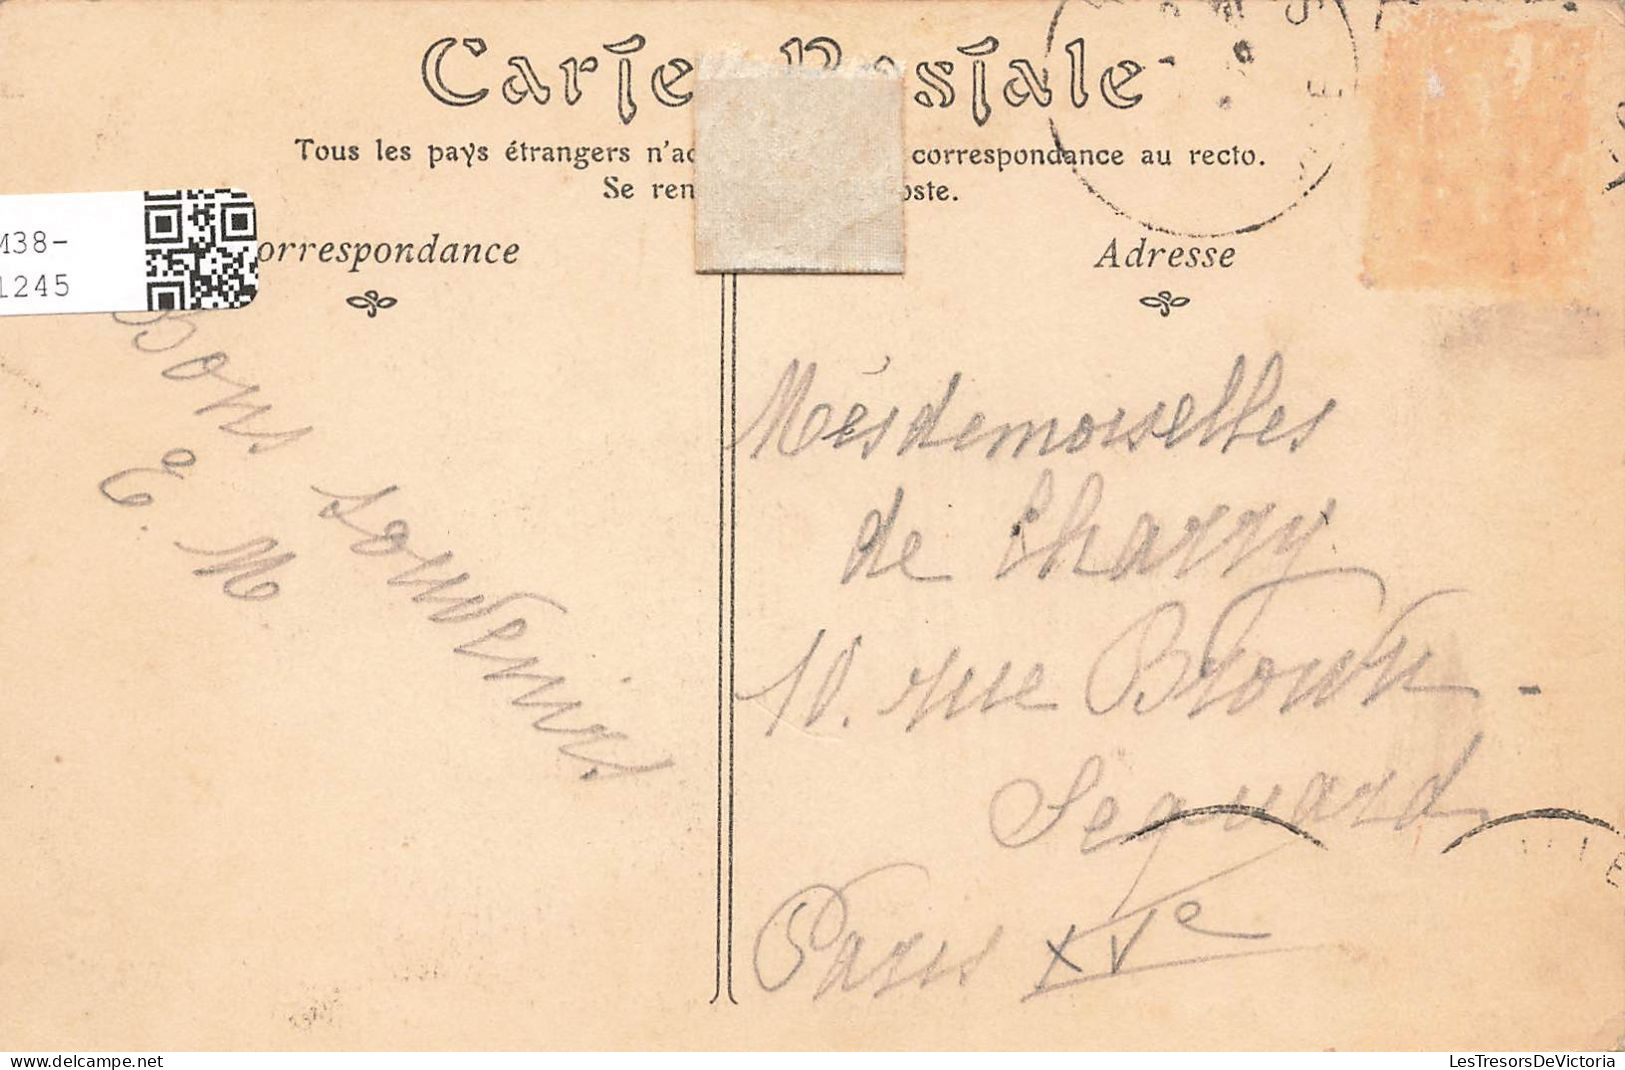 Carte Postale
Tous les pays étrangers n'ac correspondance au recto.
Se ren oste.
M38-
1245
orrespondance
Adresse
Bons souvenirs
E. M
Mesdemoiselles
de Charry
10. rue Brown-
Sequard
Paris XVe
LesTresorsDeVictoria